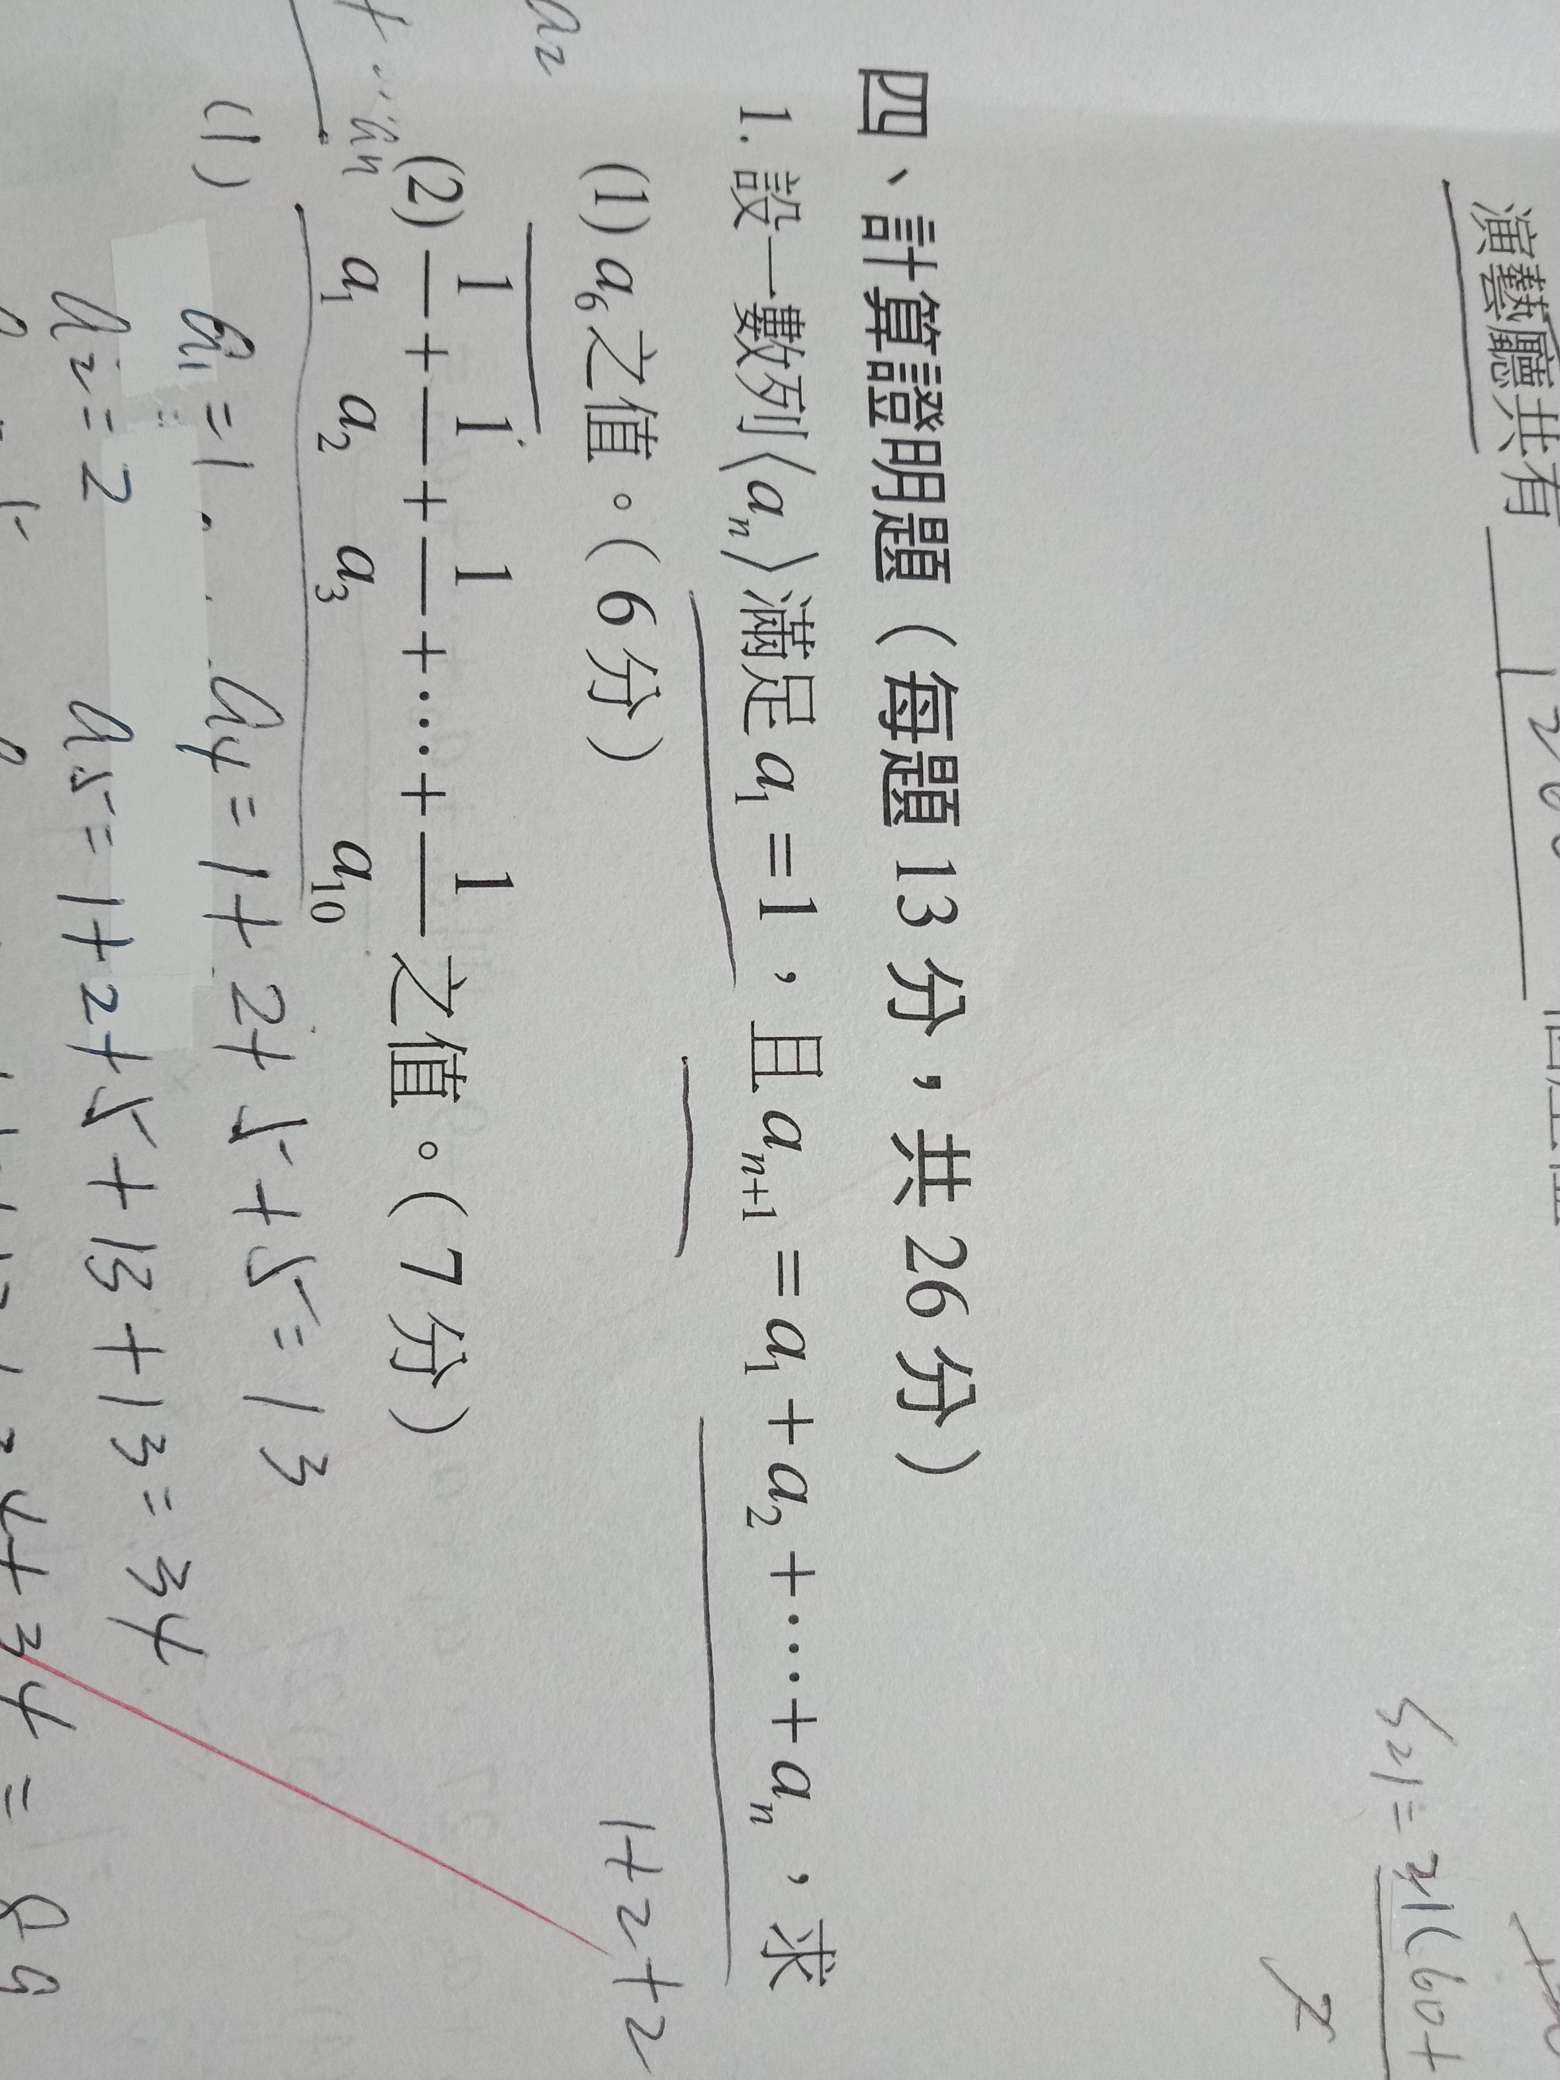 演藝廳共有
S21 = 21(60+
2
四、計算證明題（每題 13 分，共 26 分）
1. 設一數列⟨aₙ⟩滿足 a₁ = 1，且 aₙ₊₁ = a₁ + a₂ + ⋯ + aₙ，求
(1) a₆ 之值。（6 分）
1+2+2
a2
(2) 1/a₁ + 1/a₂ + 1/a₃ + ⋯ + 1/a₁₀ 之值。（7 分）
+ ... an
(1) a1 = 1 . a4 = 1+2+5+5 = 13
a2 = 2 a5 = 1+2+5+13+13 = 34